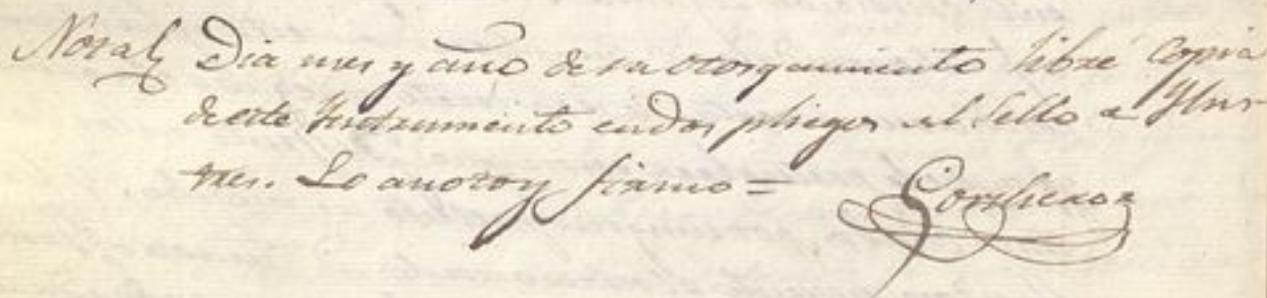 Nota Dia mes y año de su otorgamiento libré Copia
de este Ynstrumento en dos pliegos del Sello de Ylus-
tres. Lo anoto y firmo =